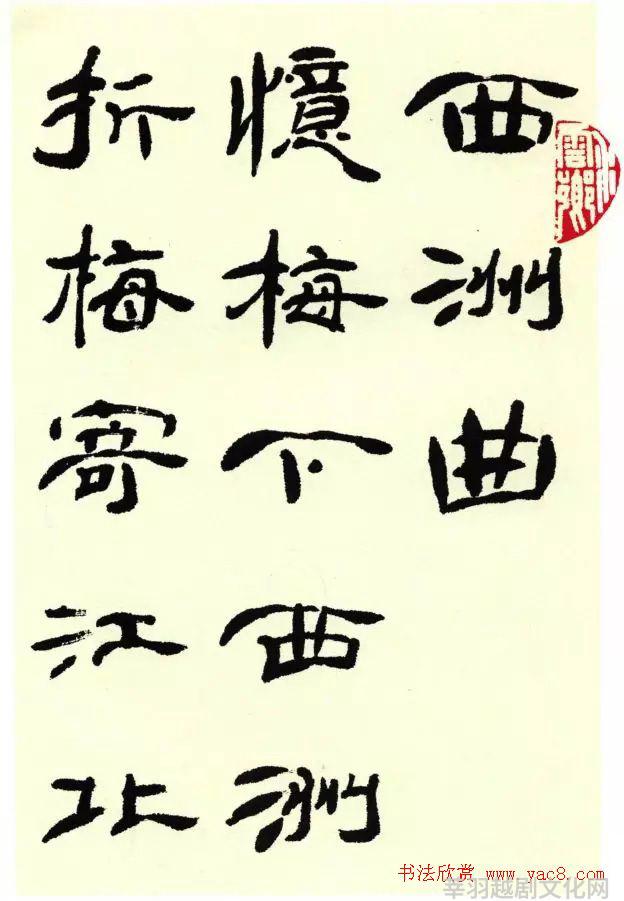 西洲曲
憶梅下西洲
折梅寄江北
书法欣赏 www.yac8.com
莘羽越剧文化网